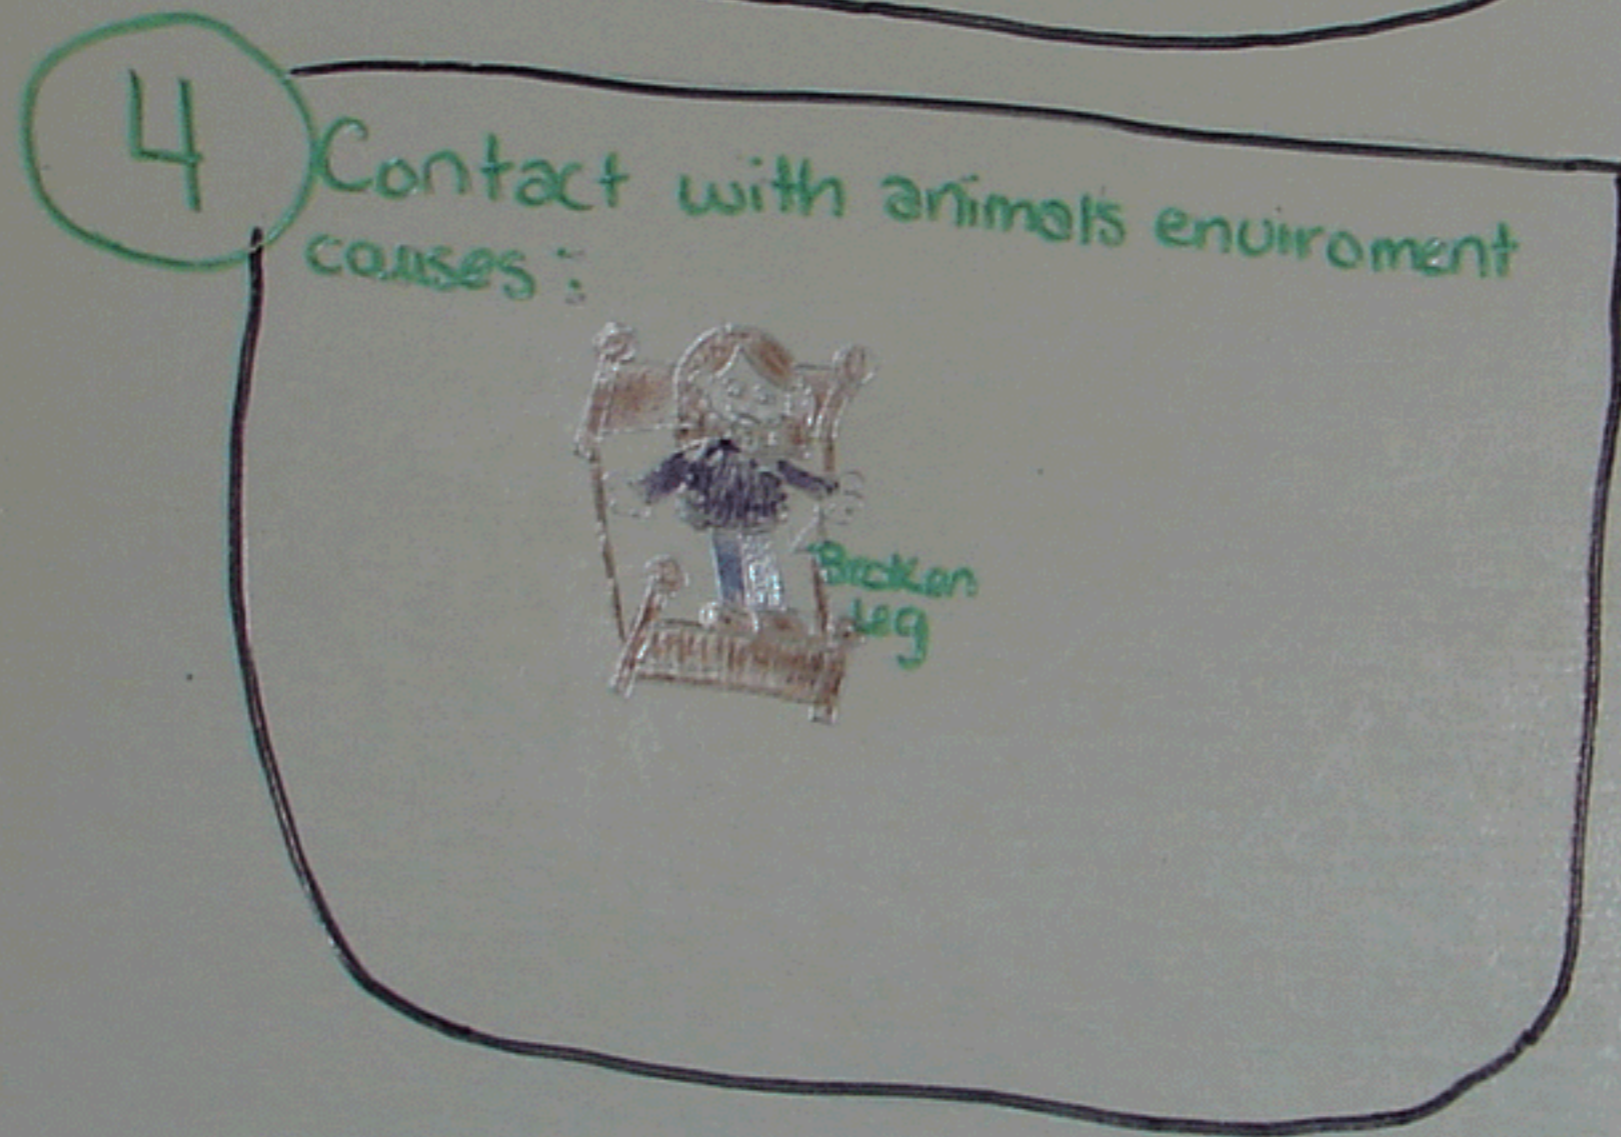 4
Contact with animals enviroment
causes:
Broken
leg